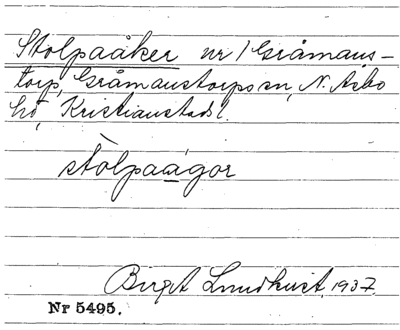 Stolpaåker nr 1 Gråmans-
torp, Gråmanstorps sn, N. Asbo
hd, Kristianstads l.
stòlpaágor
Birgit Lundkvist, 1937.
Nr 5495.